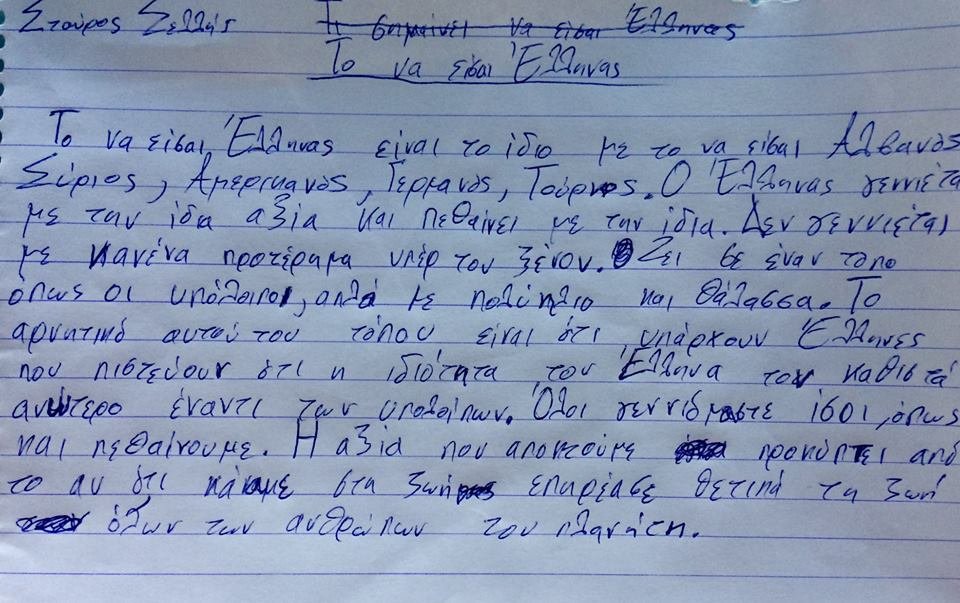 Σταύρος Σελλής Τι σημαίνει να είσαι Έλληνας
Το να είσαι Έλληνας
Το να είσαι Έλληνας είναι το ίδιο με το να είσαι Αλβανός
Σύριος, Αμερικανός, Γερμανός, Τούρκος. Ο Έλληνας γεννιέτα
με την ίδια αξία και πεθαίνει με την ίδια. Δεν γεννιέται
με κανένα προτέραμα υπέρ του ξένου. Ζει σε έναν τόπο
όπως οι υπόλοιποι, αλλά με πολύ ήλιο και θάλασσα. Το
αρνητικό αυτού του τόπου είναι ότι υπάρχουν Έλληνες
που πιστεύουν ότι η ιδιότητα του Έλληνα τον καθιστά
ανώτερο έναντι των υπολοίπων. Όλοι γεννιόμαστε ίσοι, όπως
και πεθαίνουμε. Η αξία που αποκτούμε προκύπτει από
το αν ότι κάναμε στη ζωή επηρέασε θετικά τη ζωή
όλων των ανθρώπων του πλανήτη.